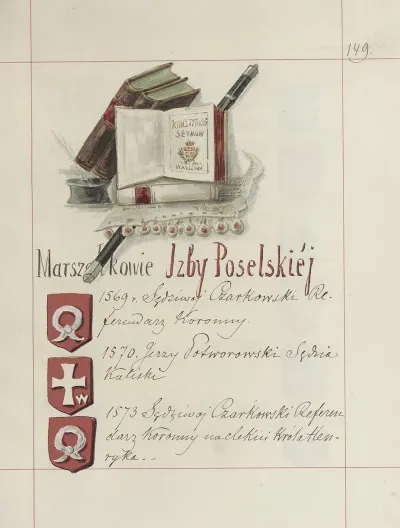 149.
KONSTYTUCJE
SEYMOW
Marszałkowie Izby Poselskiéj
1569 r. Sędziwoj Czarkowski Re-
ferendarz Koronny.
1570. Jerzy Potworowski Sędzia
Kaliski
W
1573 Sędziwoj Czarkowski Referen
darz Koronny na elekcii Króla Hen-
ryka.-